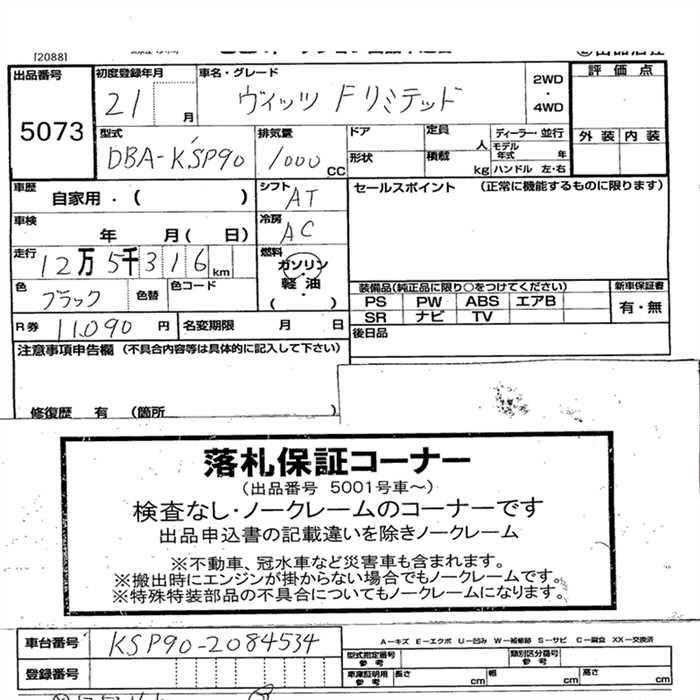 [2088]
出品番号 5073
初度登録年月 21 月
車名・グレード ヴィッツ Fリミテッド
2WD
・
4WD
評価点
外装 内装
型式 DBA-KSP90
排気量 1000 CC
ドア
形状
定員 人
積載 kg
ディーラー・並行
モデル年式 年
ハンドル 左・右
車歴 自家用・( )
シフト AT
セールスポイント (正常に機能するものに限ります)
車検 年 月( 日)
冷房 AC
走行 12万5千316km
燃料 ガソリン
・
軽油
( )
色 ブラック
色替
色コード
装備品(純正品に限り○をつけてください)
新車保証書
PS PW ABS エアB
有・無
SR ナビ TV
R券 11,090 円
名変期限 月 日
後日品
注意事項申告欄 (不具合内容等は具体的に記入して下さい)
修復歴 有 (箇所
落札保証コーナー
(出品番号 5001号車~)
検査なし・ノークレームのコーナーです
出品申込書の記載違いを除きノークレーム
※不動車、冠水車など災害車も含まれます。
※搬出時にエンジンが掛からない場合でもノークレームです。
※特殊特装部品の不具合についてもノークレームになります。
車台番号 KSP90-2084534
A-キズ E-エクボ U-凹み W-補修跡 S-サビ C-腐食 XX-交換済
型式指定番号 参考
類別区分番号 参考
登録番号
車庫証明用 参考
長さ cm
幅 cm
高さ cm